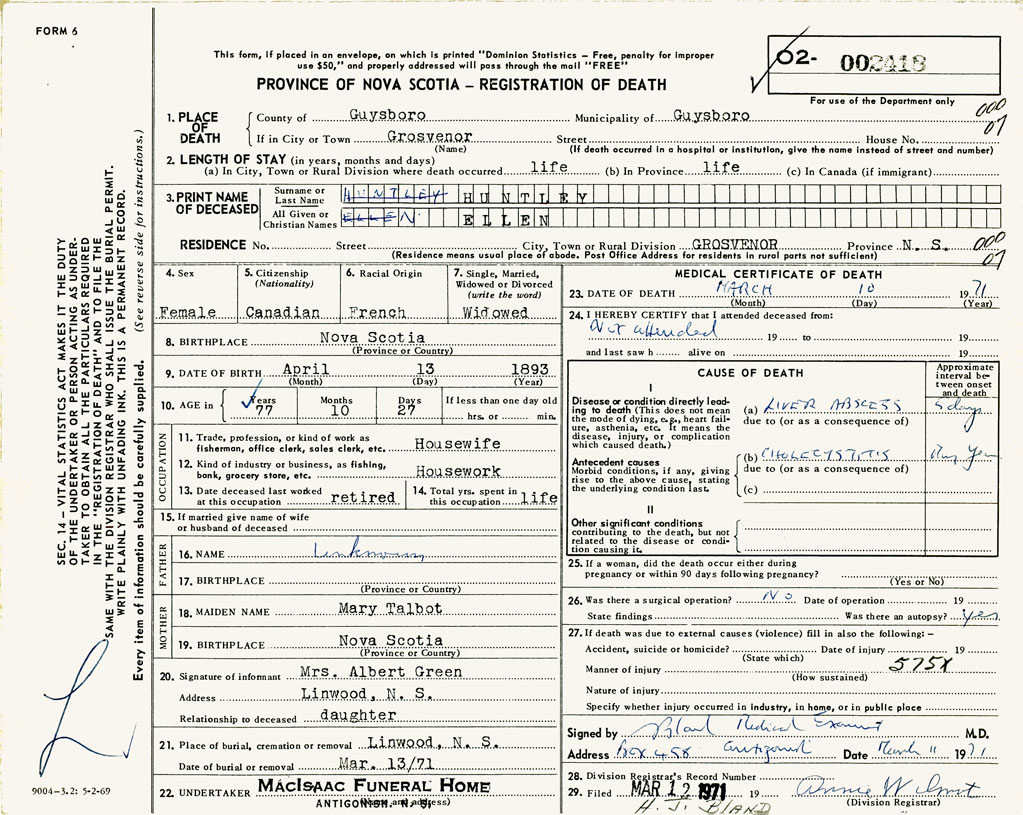 FORM 6
This form, if placed in an envelope, on which is printed "Dominion Statistics – Free, penalty for improper
use $50," and properly addressed will pass through the mail "FREE"
PROVINCE OF NOVA SCOTIA – REGISTRATION OF DEATH
02- 002418
For use of the Department only
1. PLACE OF DEATH
County of Guysboro Municipality of Guysboro 000
If in City or Town Grosvenor Street House No. 07
(Name) (If death occurred in a hospital or institution, give the name instead of street and number)
2. LENGTH OF STAY (in years, months and days)
(a) In City, Town or Rural Division where death occurred life (b) In Province life (c) In Canada (if immigrant)
3. PRINT NAME OF DECEASED
Surname or Last Name HUNTLEY HUNTLEY
All Given or Christian Names ELLEN ELLEN
RESIDENCE No. Street City, Town or Rural Division GROSVENOR Province N. S. 000
(Residence means usual place of abode. Post Office Address for residents in rural parts not sufficient) 07
4. Sex
Female
5. Citizenship
(Nationality)
Canadian
6. Racial Origin
French
7. Single, Married,
Widowed or Divorced
(write the word)
Widowed
8. BIRTHPLACE Nova Scotia
(Province or Country)
9. DATE OF BIRTH April 13 1893
(Month) (Day) (Year)
10. AGE in Years Months Days If less than one day old
77 10 27 hrs. or min.
OCCUPATION
11. Trade, profession, or kind of work as
fisherman, office clerk, sales clerk, etc. Housewife
12. Kind of industry or business, as fishing,
bank, grocery store, etc. Housework
13. Date deceased last worked
at this occupation retired
14. Total yrs. spent in
this occupation life
15. If married give name of wife
or husband of deceased
FATHER
16. NAME Unknown
17. BIRTHPLACE
(Province or Country)
MOTHER
18. MAIDEN NAME Mary Talbot
19. BIRTHPLACE Nova Scotia
(Province or Country)
20. Signature of informant Mrs. Albert Green
Address Linwood, N. S.
Relationship to deceased daughter
21. Place of burial, cremation or removal Linwood, N. S.
Date of burial or removal Mar. 13/71
22. UNDERTAKER MACISAAC FUNERAL HOME
(Name and address)
ANTIGONISH, N. S.
MEDICAL CERTIFICATE OF DEATH
23. DATE OF DEATH MARCH 10 1971
(Month) (Day) (Year)
24. I HEREBY CERTIFY that I attended deceased from:
Not attended 19 to 19
and last saw h alive on 19
CAUSE OF DEATH
Approximate
interval be-
tween onset
and death
I
Disease or condition directly lead-
ing to death (This does not mean
the mode of dying, e.g., heart fail-
ure, asthenia, etc. It means the
disease, injury, or complication
which caused death.)
(a) LIVER ABSCESS 5 days
due to (or as a consequence of)
Antecedent causes
Morbid conditions, if any, giving
rise to the above cause, stating
the underlying condition last.
(b) CHOLECYSTITIS
due to (or as a consequence of)
(c)
II
Other significant conditions
contributing to the death, but not
related to the disease or condi-
tion causing it.
25. If a woman, did the death occur either during
pregnancy or within 90 days following pregnancy?
(Yes or No)
26. Was there a surgical operation? No Date of operation 19
State findings Was there an autopsy? yes
27. If death was due to external causes (violence) fill in also the following: –
Accident, suicide or homicide? Date of injury 19
(State which)
Manner of injury 575X
(How sustained)
Nature of injury
Specify whether injury occurred in industry, in home, or in public place
Signed by Bland Medical Examiner M.D.
Address Box 458 Antigonish Date March 11 1971
28. Division Registrar's Record Number
29. Filed MAR 12 1971 19 Annie Wilmot
H. J. BLAND (Division Registrar)
SEC. 14 – VITAL STATISTICS ACT MAKES IT THE DUTY
OF THE UNDERTAKER OR PERSON ACTING AS UNDER-
TAKER TO OBTAIN ALL THE PARTICULARS REQUIRED
IN THE "REGISTRATION OF DEATH" AND TO FILE THE
SAME WITH THE DIVISION REGISTRAR WHO SHALL ISSUE THE BURIAL PERMIT.
WRITE PLAINLY WITH UNFADING INK. THIS IS A PERMANENT RECORD.
Every item of information should be carefully supplied. (See reverse side for instructions.)
9004-3.2: 5-2-69